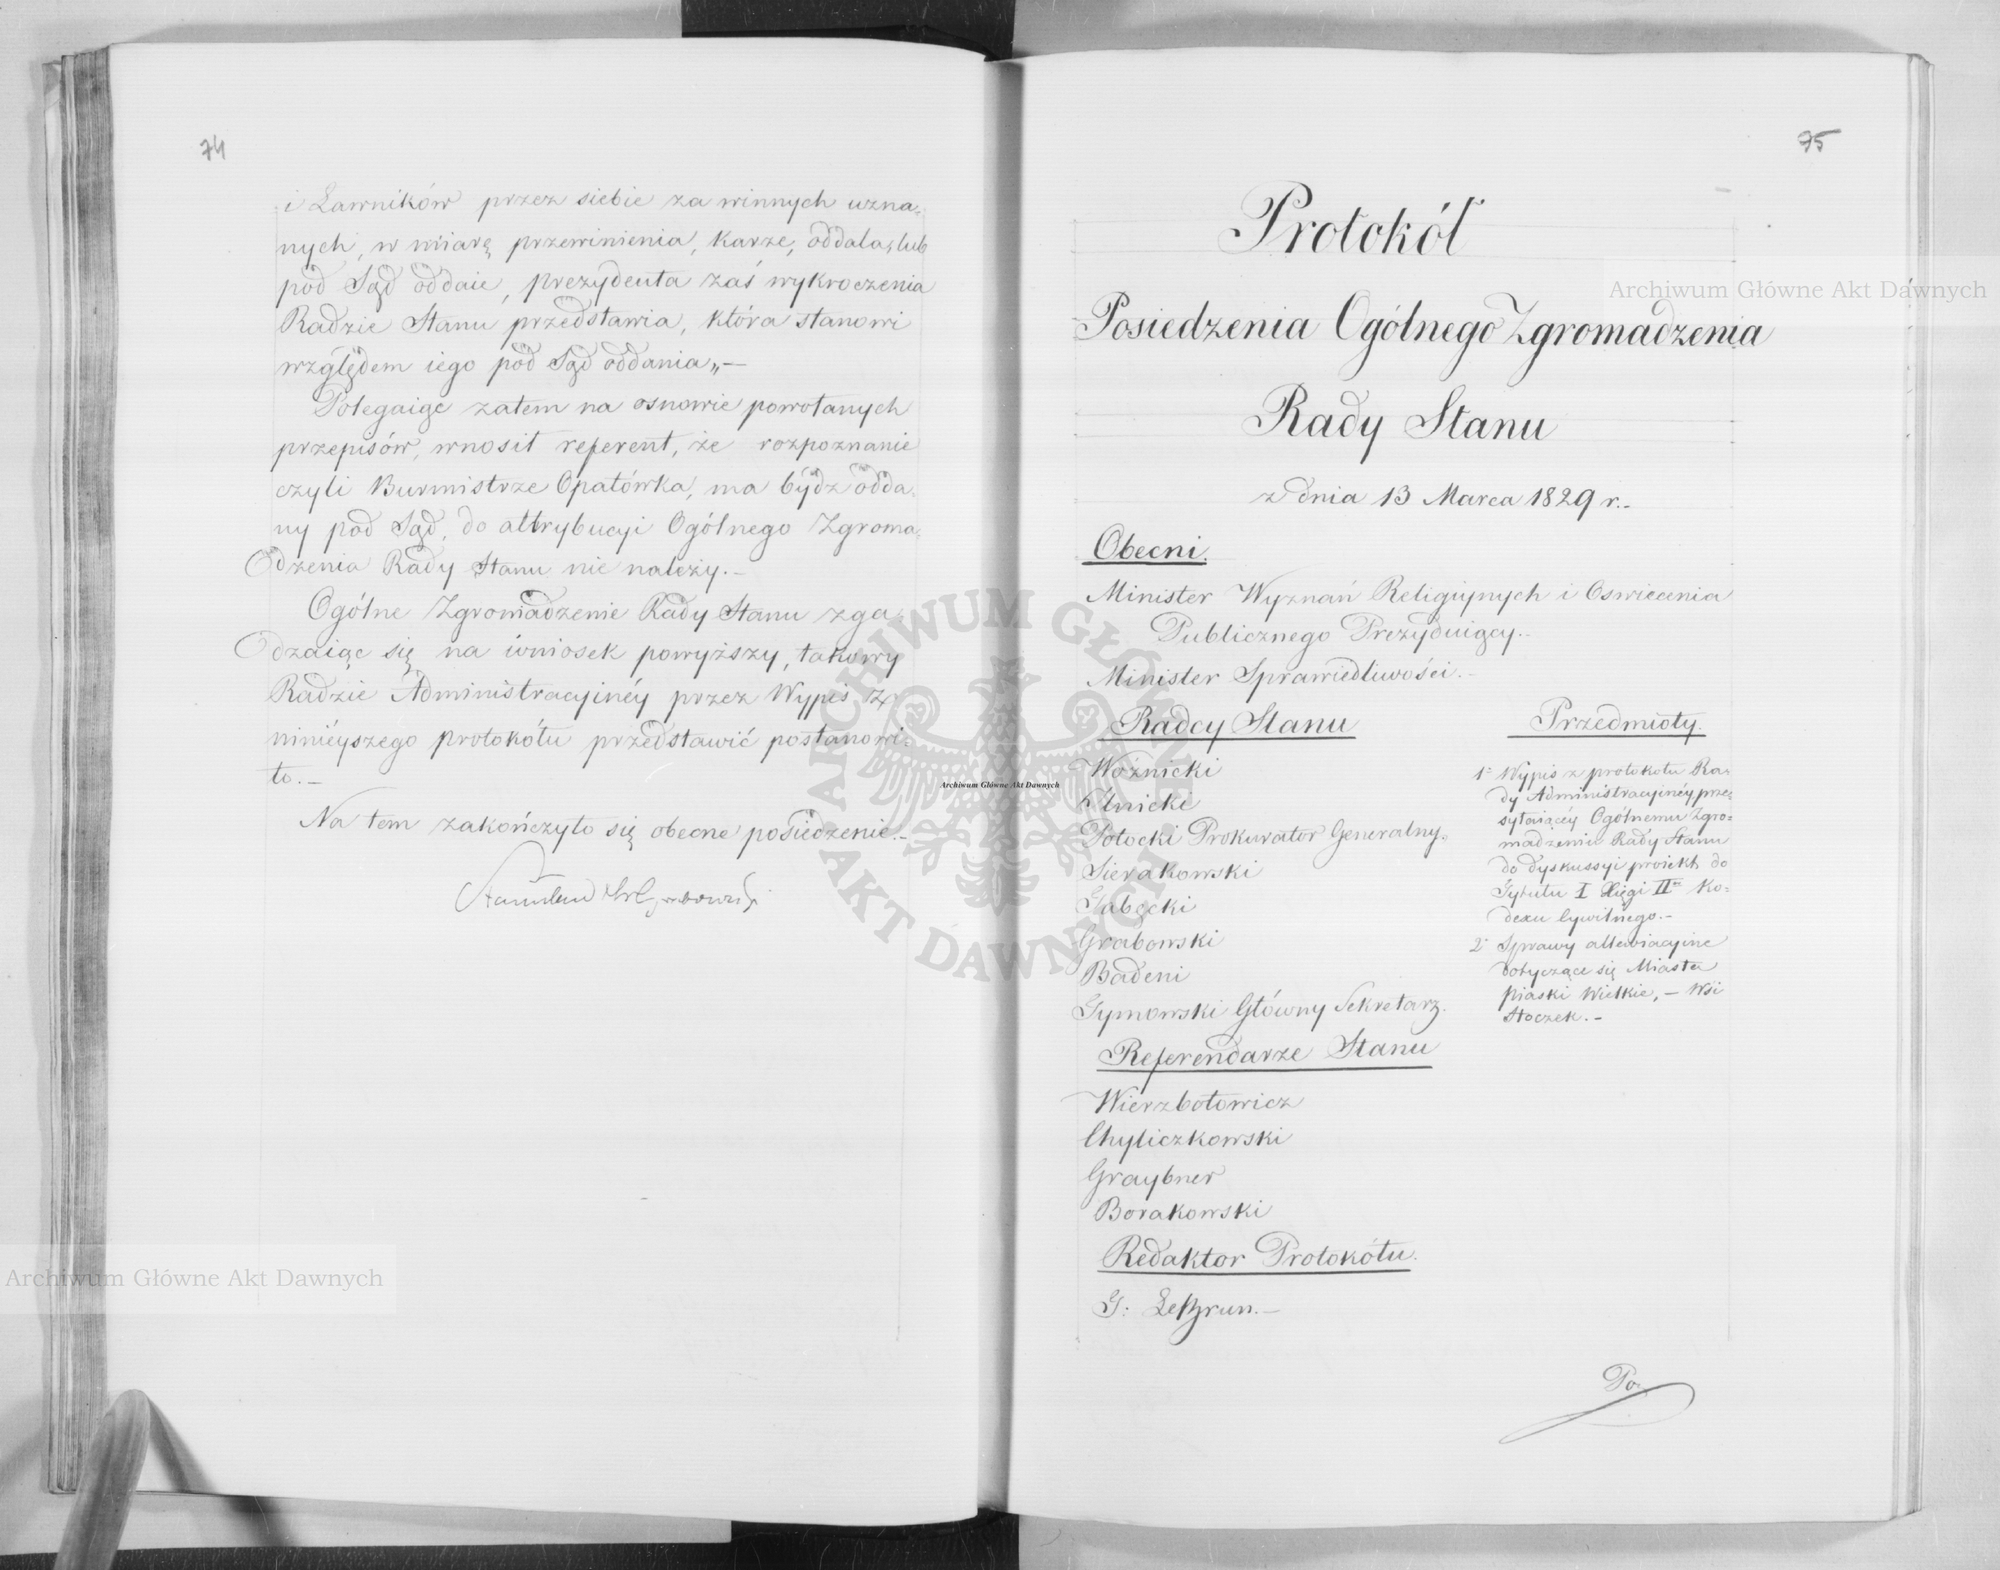 74
i Ławników przez siebie za winnych uzna-
nych, w miarę przewinienia, karze, oddala, lub
pod Sąd oddaie, prezydenta zaś wykroczenia
Radzie Stanu przedstawia, która stanowi
względem iego pod Sąd oddania„—
Polegaiąc zatem na osnowie powołanych
przepisów, wnosił referent, że rozpoznanie
czyli Burmistrze Opatówka, ma bydź odda-
ny pod Sąd, do attrybucyi Ogólnego Zgroma-
dzenia Rady Stanu nie należy.—
Ogólne Zgromadzenie Rady Stanu zga-
dzaiąc się na wniosek powyższy, takowy
Radzie Administracyinéy przez Wypis z
ninieyszego protokółu przedstawić postanowi-
ło.—
Na tem zakończyło się obecne posiedzenie.—
75
Protokół
Posiedzenia Ogólnego Zgromadzenia
Rady Stanu
z dnia 13 Marca 1829 r.-
Obecni.
Minister Wyznań Religiynych i Oswiecenia
Publicznego Prezyduiący.-
Minister Sprawiedliwości.-
Radcy Stanu
Woźnicki
Potocki Prokurator Generalny.
Sierakowski
Grabowski
Badeni
Tymowski Główny Sekretarz.
Referendarze Stanu
Wierzbołowicz
Chyliczkowski
Graybner
Borakowski
Redaktor Protokółu.
G: LeBrun.—
Przedmioty
1- Wypis z protokołu Ra-
dy Administracyinéy prze-
syłaiącéy Ogólnemu Zgro-
madzeniu Rady Stanu
do dyskussyi proiekt do
Tytułu I Xięgi II Ko-
dexu Cywilnego.-
2- Sprawy allewiacyine
dotyczące się Miasta
Piaski Wielkie, — Wsi
Stoczek.-
Po
Archiwum Główne Akt Dawnych
Archiwum Główne Akt Dawnych
Archiwum Główne Akt Dawnych
ARCHIWUM GŁÓWNE AKT DAWNYCH